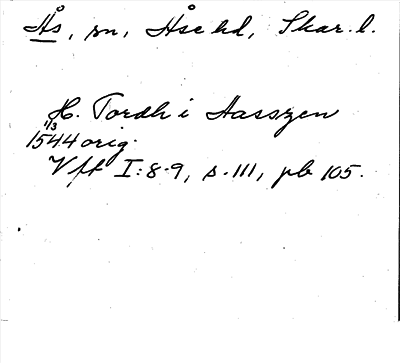 Ås, sn, Åse hd, Skar. l.
H. Tordh i Aasszen
1/3
1544 orig.
Vft I:8-9, s. 111, pb 105.